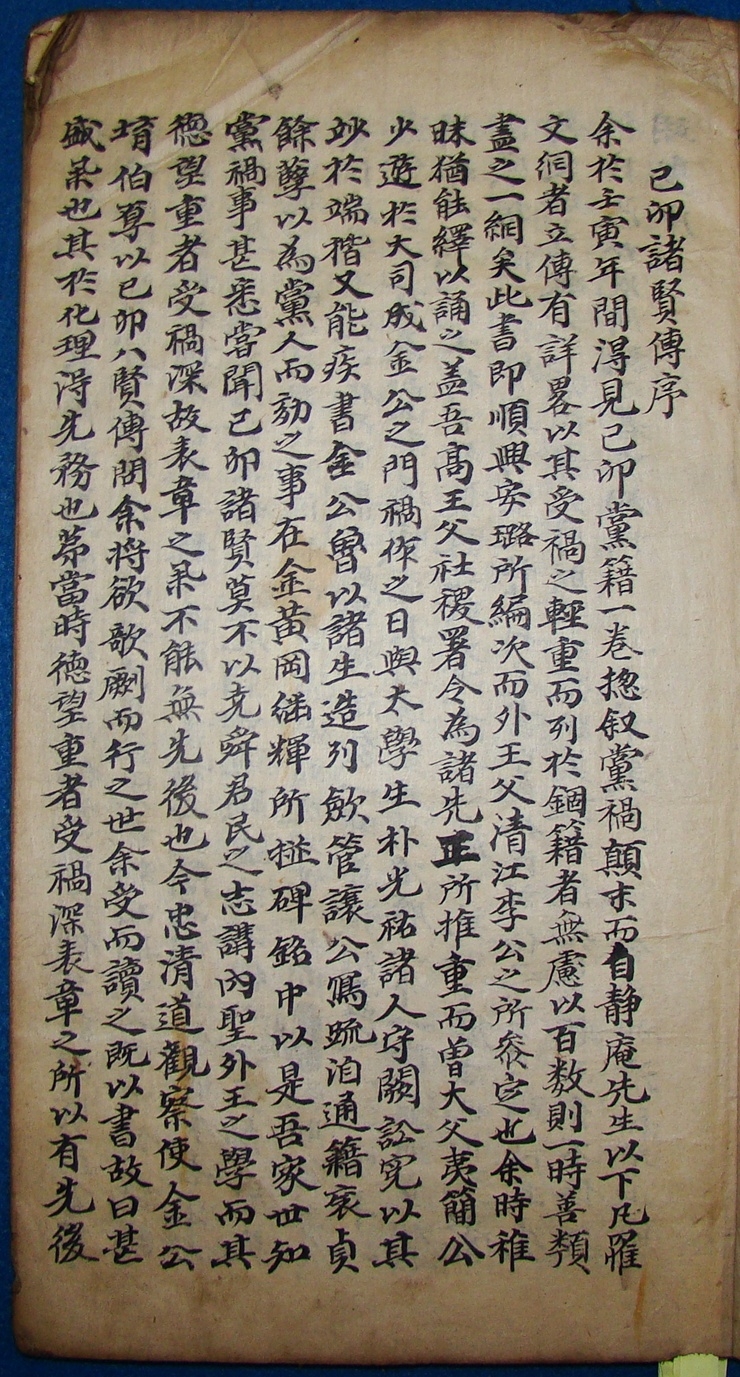 己卯諸賢傳序
余於壬寅年間得見己卯黨籍一卷揔叙黨禍顚末而自靜庵先生以下凡罹
文網者立傳有詳畧以其受禍之輕重而列於錮籍者無慮以百数則一時善類
盡之一網矣此書即順興安璐所編次而外王父清江李公之所叅定也余時稚
昧猶能繹以誦之盖吾高王父社稷署令為諸先正所推重而曾大父夷簡公
少遊於大司成金公之門禍作之日與太學生朴光祐諸人守闕訟寃以其
妙於端楷又能疾書金公曾以諸生造列歛管讓公寫䟽洎通籍衮貞
餘孽以為黨人而劾之事在金黄岡継輝所㨗碑銘中以是吾家世知
黨禍事甚悉嘗聞己卯諸賢莫不以堯舜君民之志講內聖外王之學而其
德望重者受禍深故表章之果不能無先後也今忠清道觀察使金公
堉伯厚以己卯八賢傳問余将欲歌劂而行之世余受而讀之既以書故曰甚
盛果也其於化理得先務也苐當時徳望重者受禍深表章之所以有先後